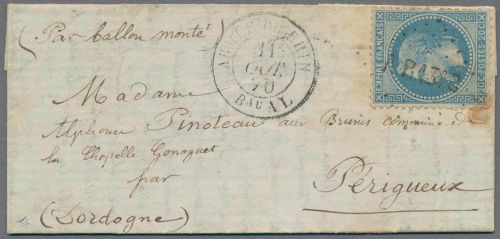 (Par ballon monté)
11E
OCT.
70
BAU AL
EMPIRE FRANÇAIS
20 C POSTES 20 C
Madame
Alphonse Pinoteau aux Brunis commune d
la Chapelle Gonaguet
par
Périgueux
(Dordogne)